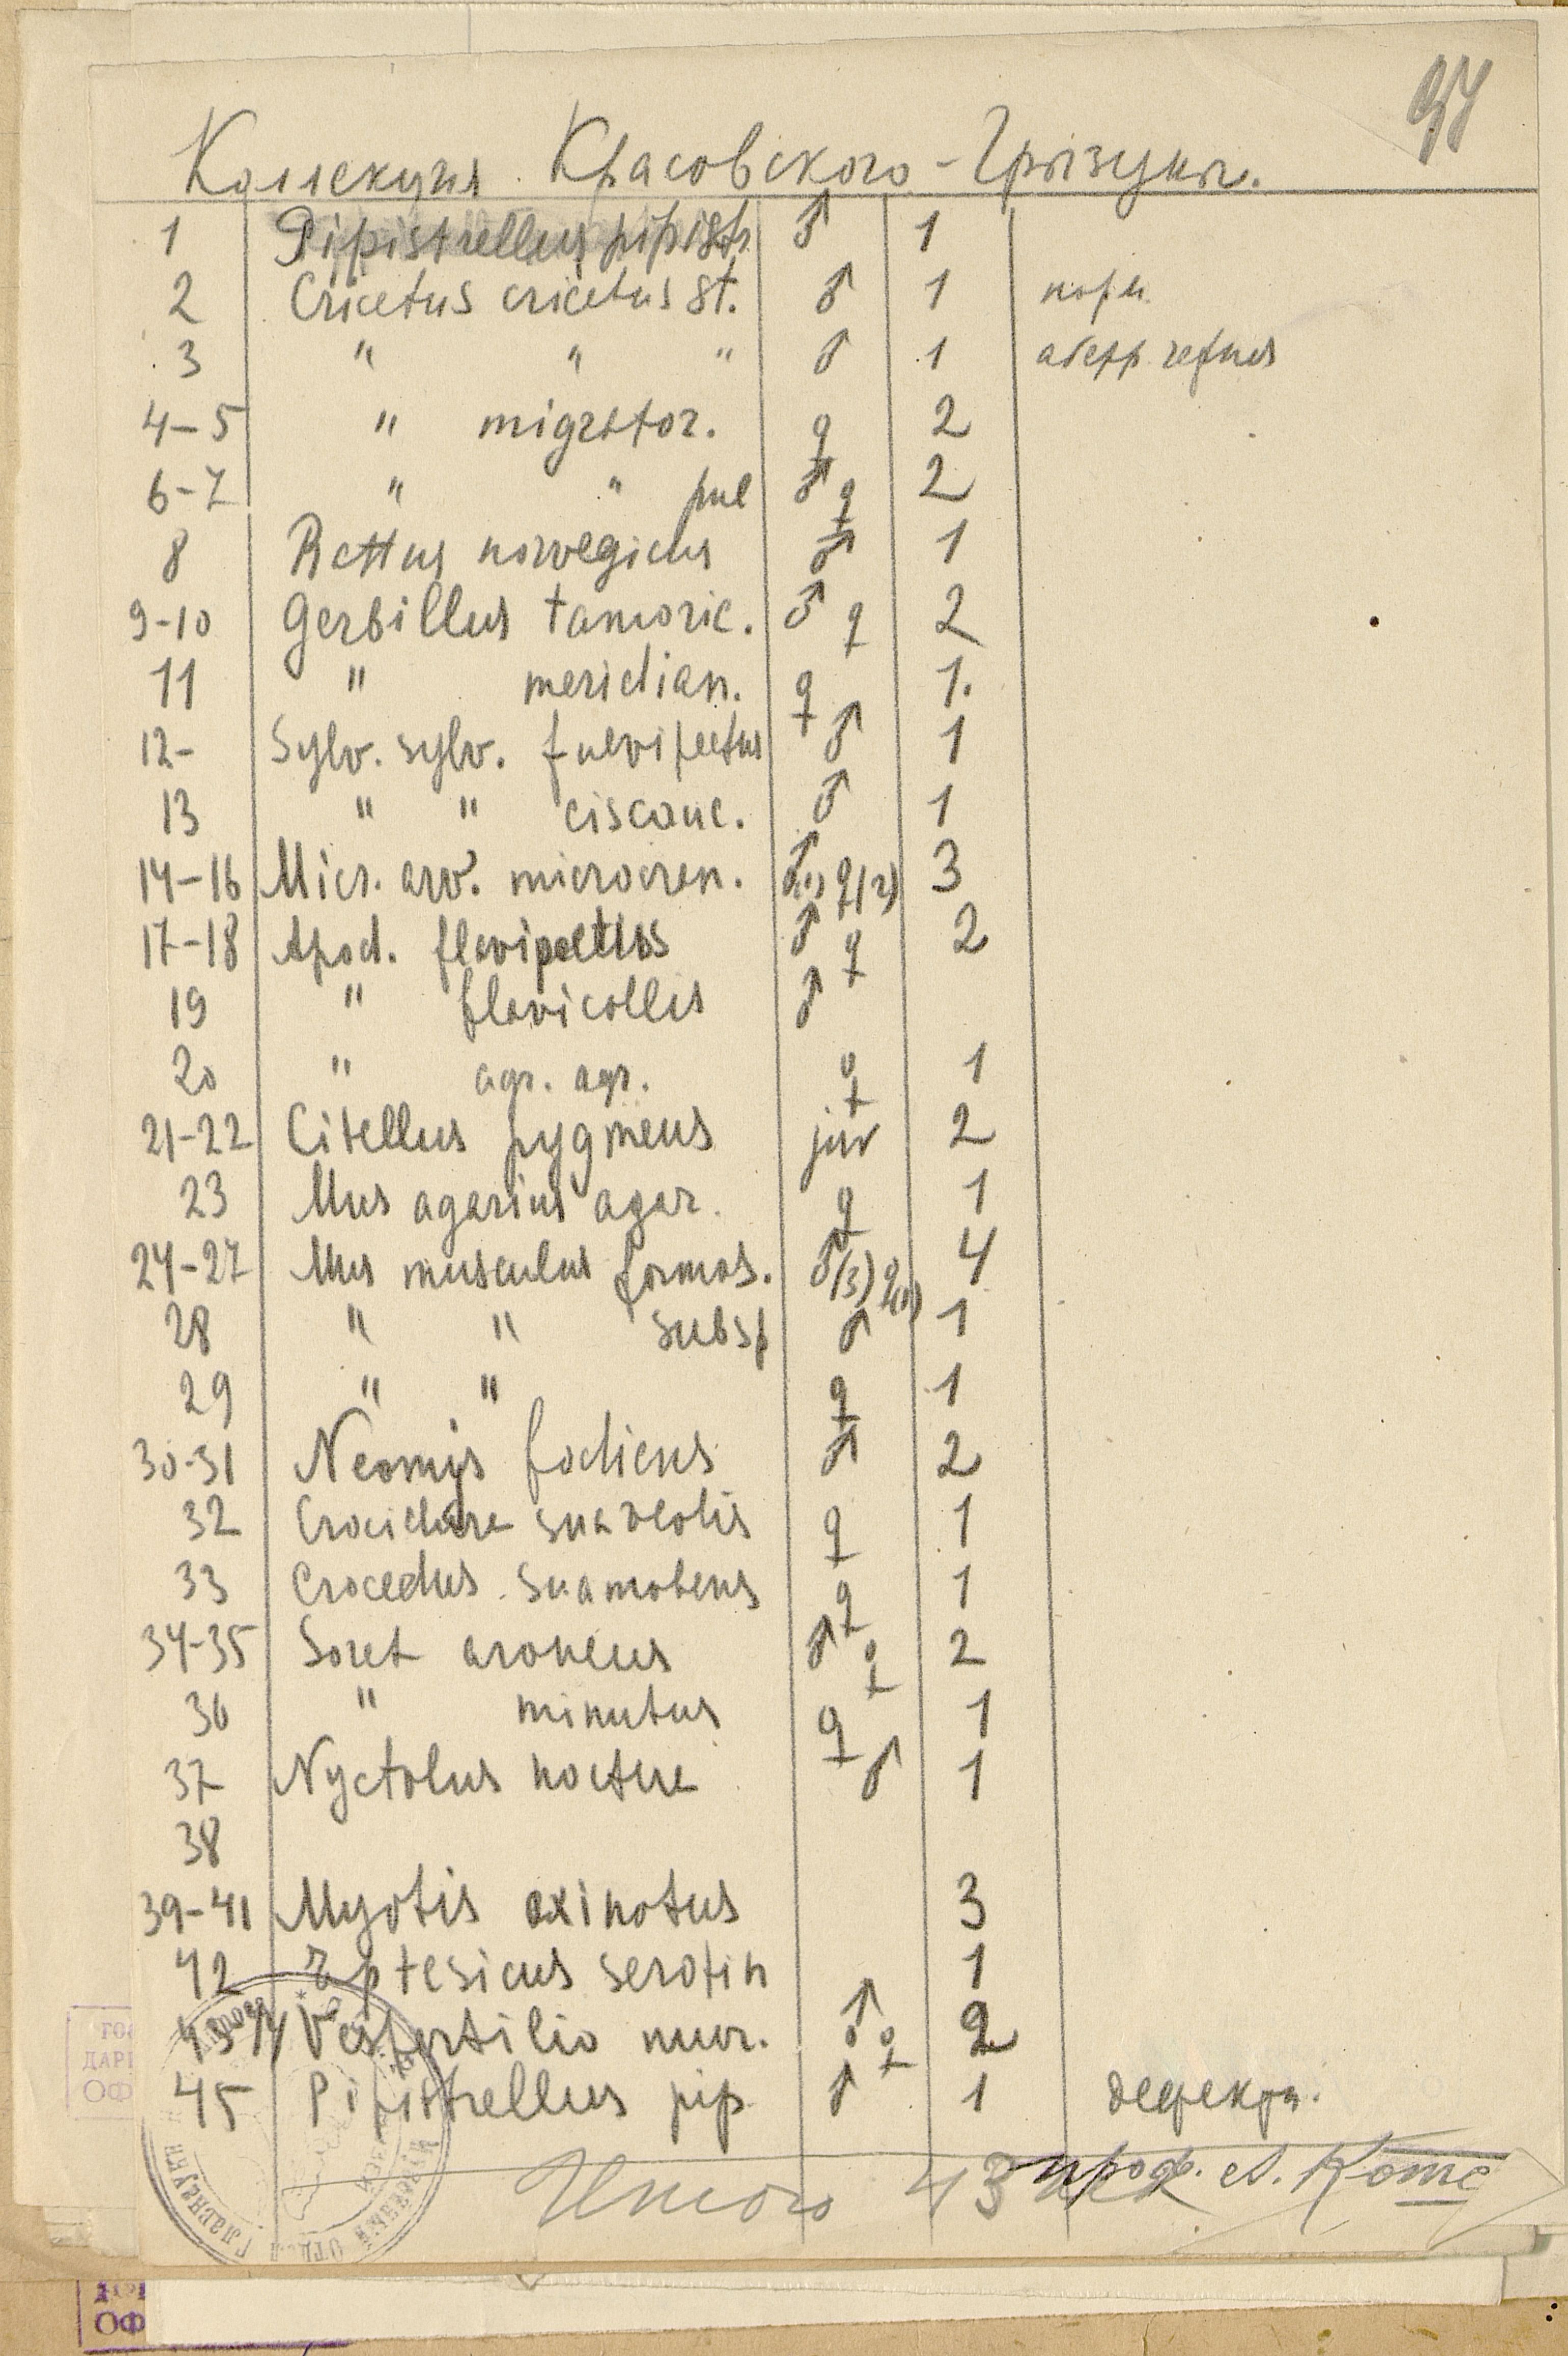 97
Коллекция Красовского - Грызуны.
1 Pipistrellus pipistr ♂ 1
2 Cricetus cricetus st. ♂ 1 норм
3 " " " ♂ 1 аберр. черная
4-5 " migrator. ♀ 2
6-7 " " pul ♂ ♀ 2
8 Rattus norvegicus ♂ 1
9-10 Gerbillus tamaric. ♂ ♀ 2
11 " meridian. ♀ 1.
12- Sylv. sylv. fulvipectus ♂ 1
13 " " ciscauc. ♂ 1
14-16 Micr. arv. macrocran. ♂(1) ♀(2) 3
17-18 Apod. flavipectus ♂ ♀ 2
19 " flavicollis ♂
20 " agr. agr. ♀ 1
21-22 Citellus pygmeus juv 2
23 Mus agarius agar. ♀ 1
24-27 Mus musculus formos. ♂(3) ♀(1) 4
28 " " subsp ♂ 1
29 " " ♀ 1
30-31 Neomys fodiens ♂ 2
32 suaveolis ♀ 1
33 Crocedus ♀ 1
34-35 Sorex araneus ♂ ♀ 2
36 " minutus ♀ 1
37 Nyctalus noctula ♂ 1
38
39-41 Myotis oxinotus 3
42 Eptesicus serotin 1
43-44 Vespertilio mur. ♂ ♀ 2
45 Pipistrellus pip ♂ 1 дефектн.
Итого 43 проф. А. Котс